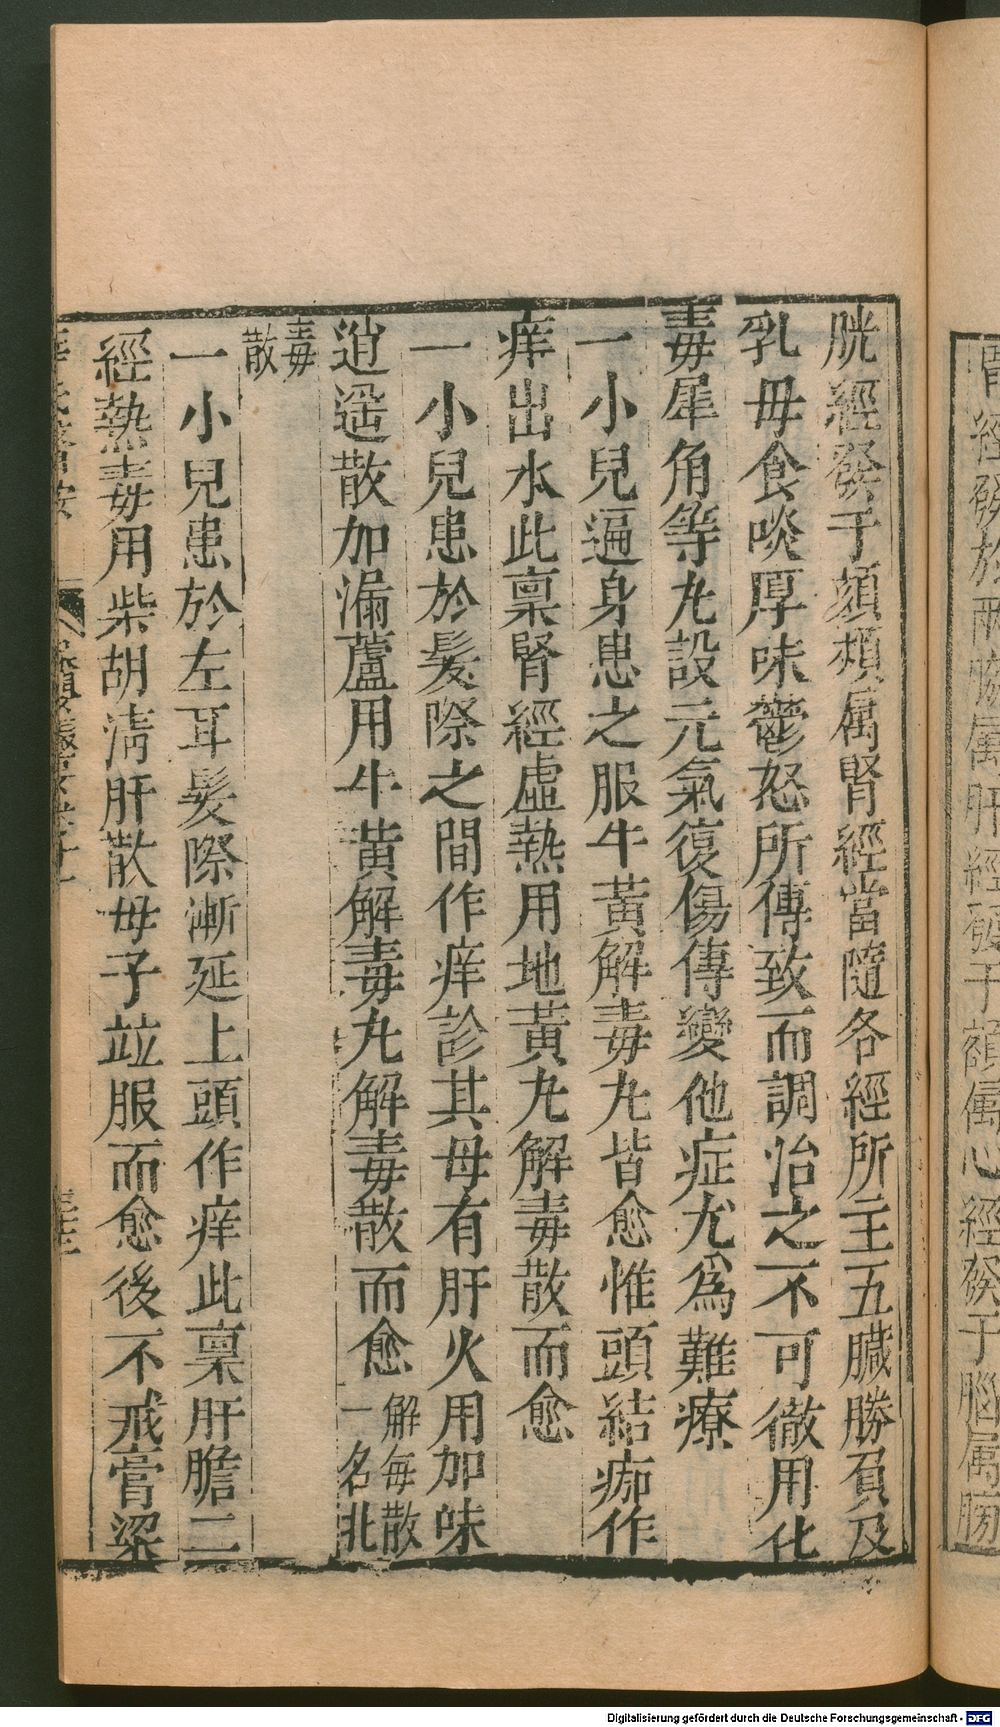 腎經發於兩脇属肝經發于額属心經發于腦属膀
胱經發于頦頰属腎經當隨各經所主五臟勝負及
乳母食啖厚味鬱怒所傳致而調治之不可徹用化
毒犀角等丸設元氣復傷傳變他症尤爲難療
一小兒遍身患之服牛黃解毒丸皆愈惟頭結痂作
痒出水此稟腎經虛熱用地黃丸解毒散而愈
一小兒患於髮際之間作痒診其母有肝火用加味
逍遥散加漏蘆用牛黃解毒丸解毒散而愈
解毎散
一名北
毒
散
一小兒患於左耳髮際漸延上頭作痒此稟肝膽二
經熱毒用柴胡淸肝散母子竝服而愈後不戒膏粱
Digitalisierung gefördert durch die Deutsche Forschungsgemeinschaft - DFG